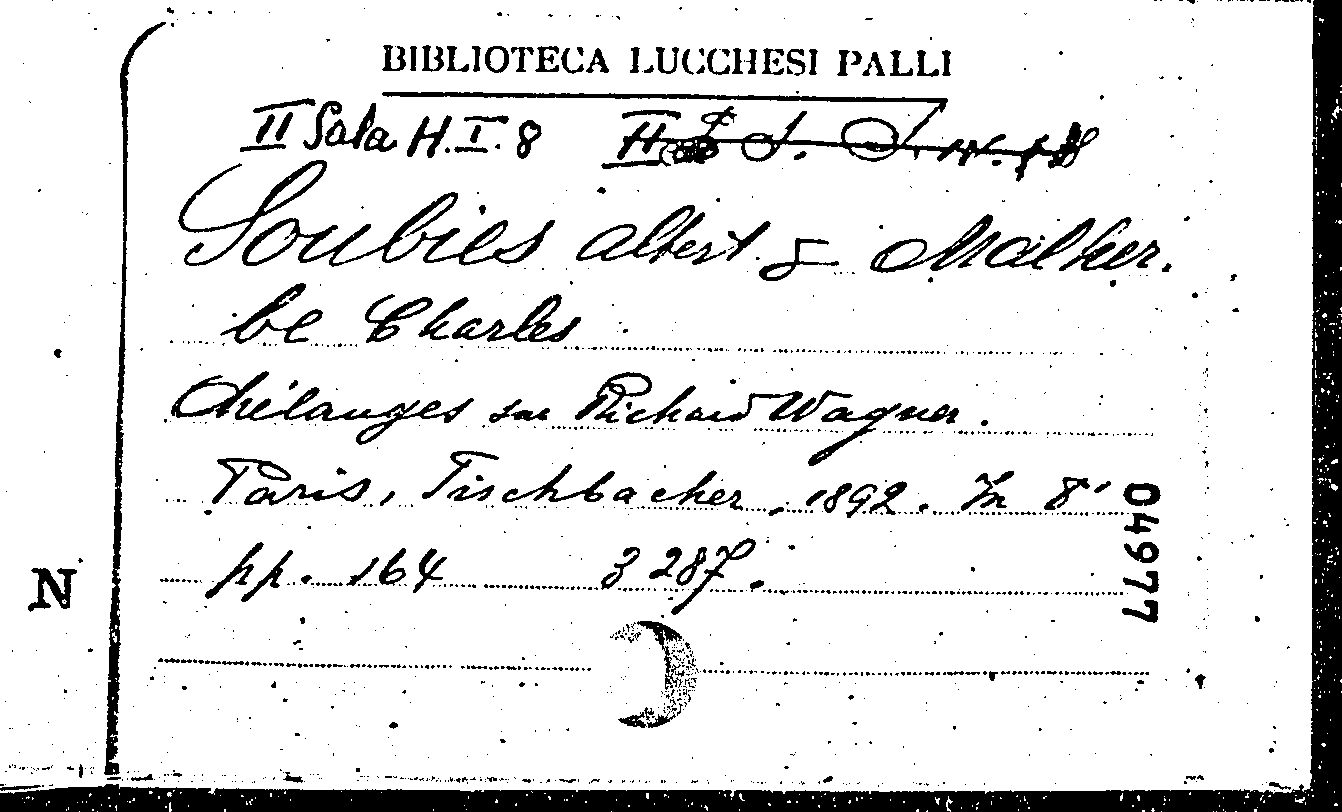 BIBLIOTECA LUCCHESI PALLI
II Sala H.I.8 II
Soubies Albert & Malher.
be Charles
Mélanges sur Richard Wagner.
Paris, Fischbacher, 1892. In 8°
pp. 164 3287.
04977
N